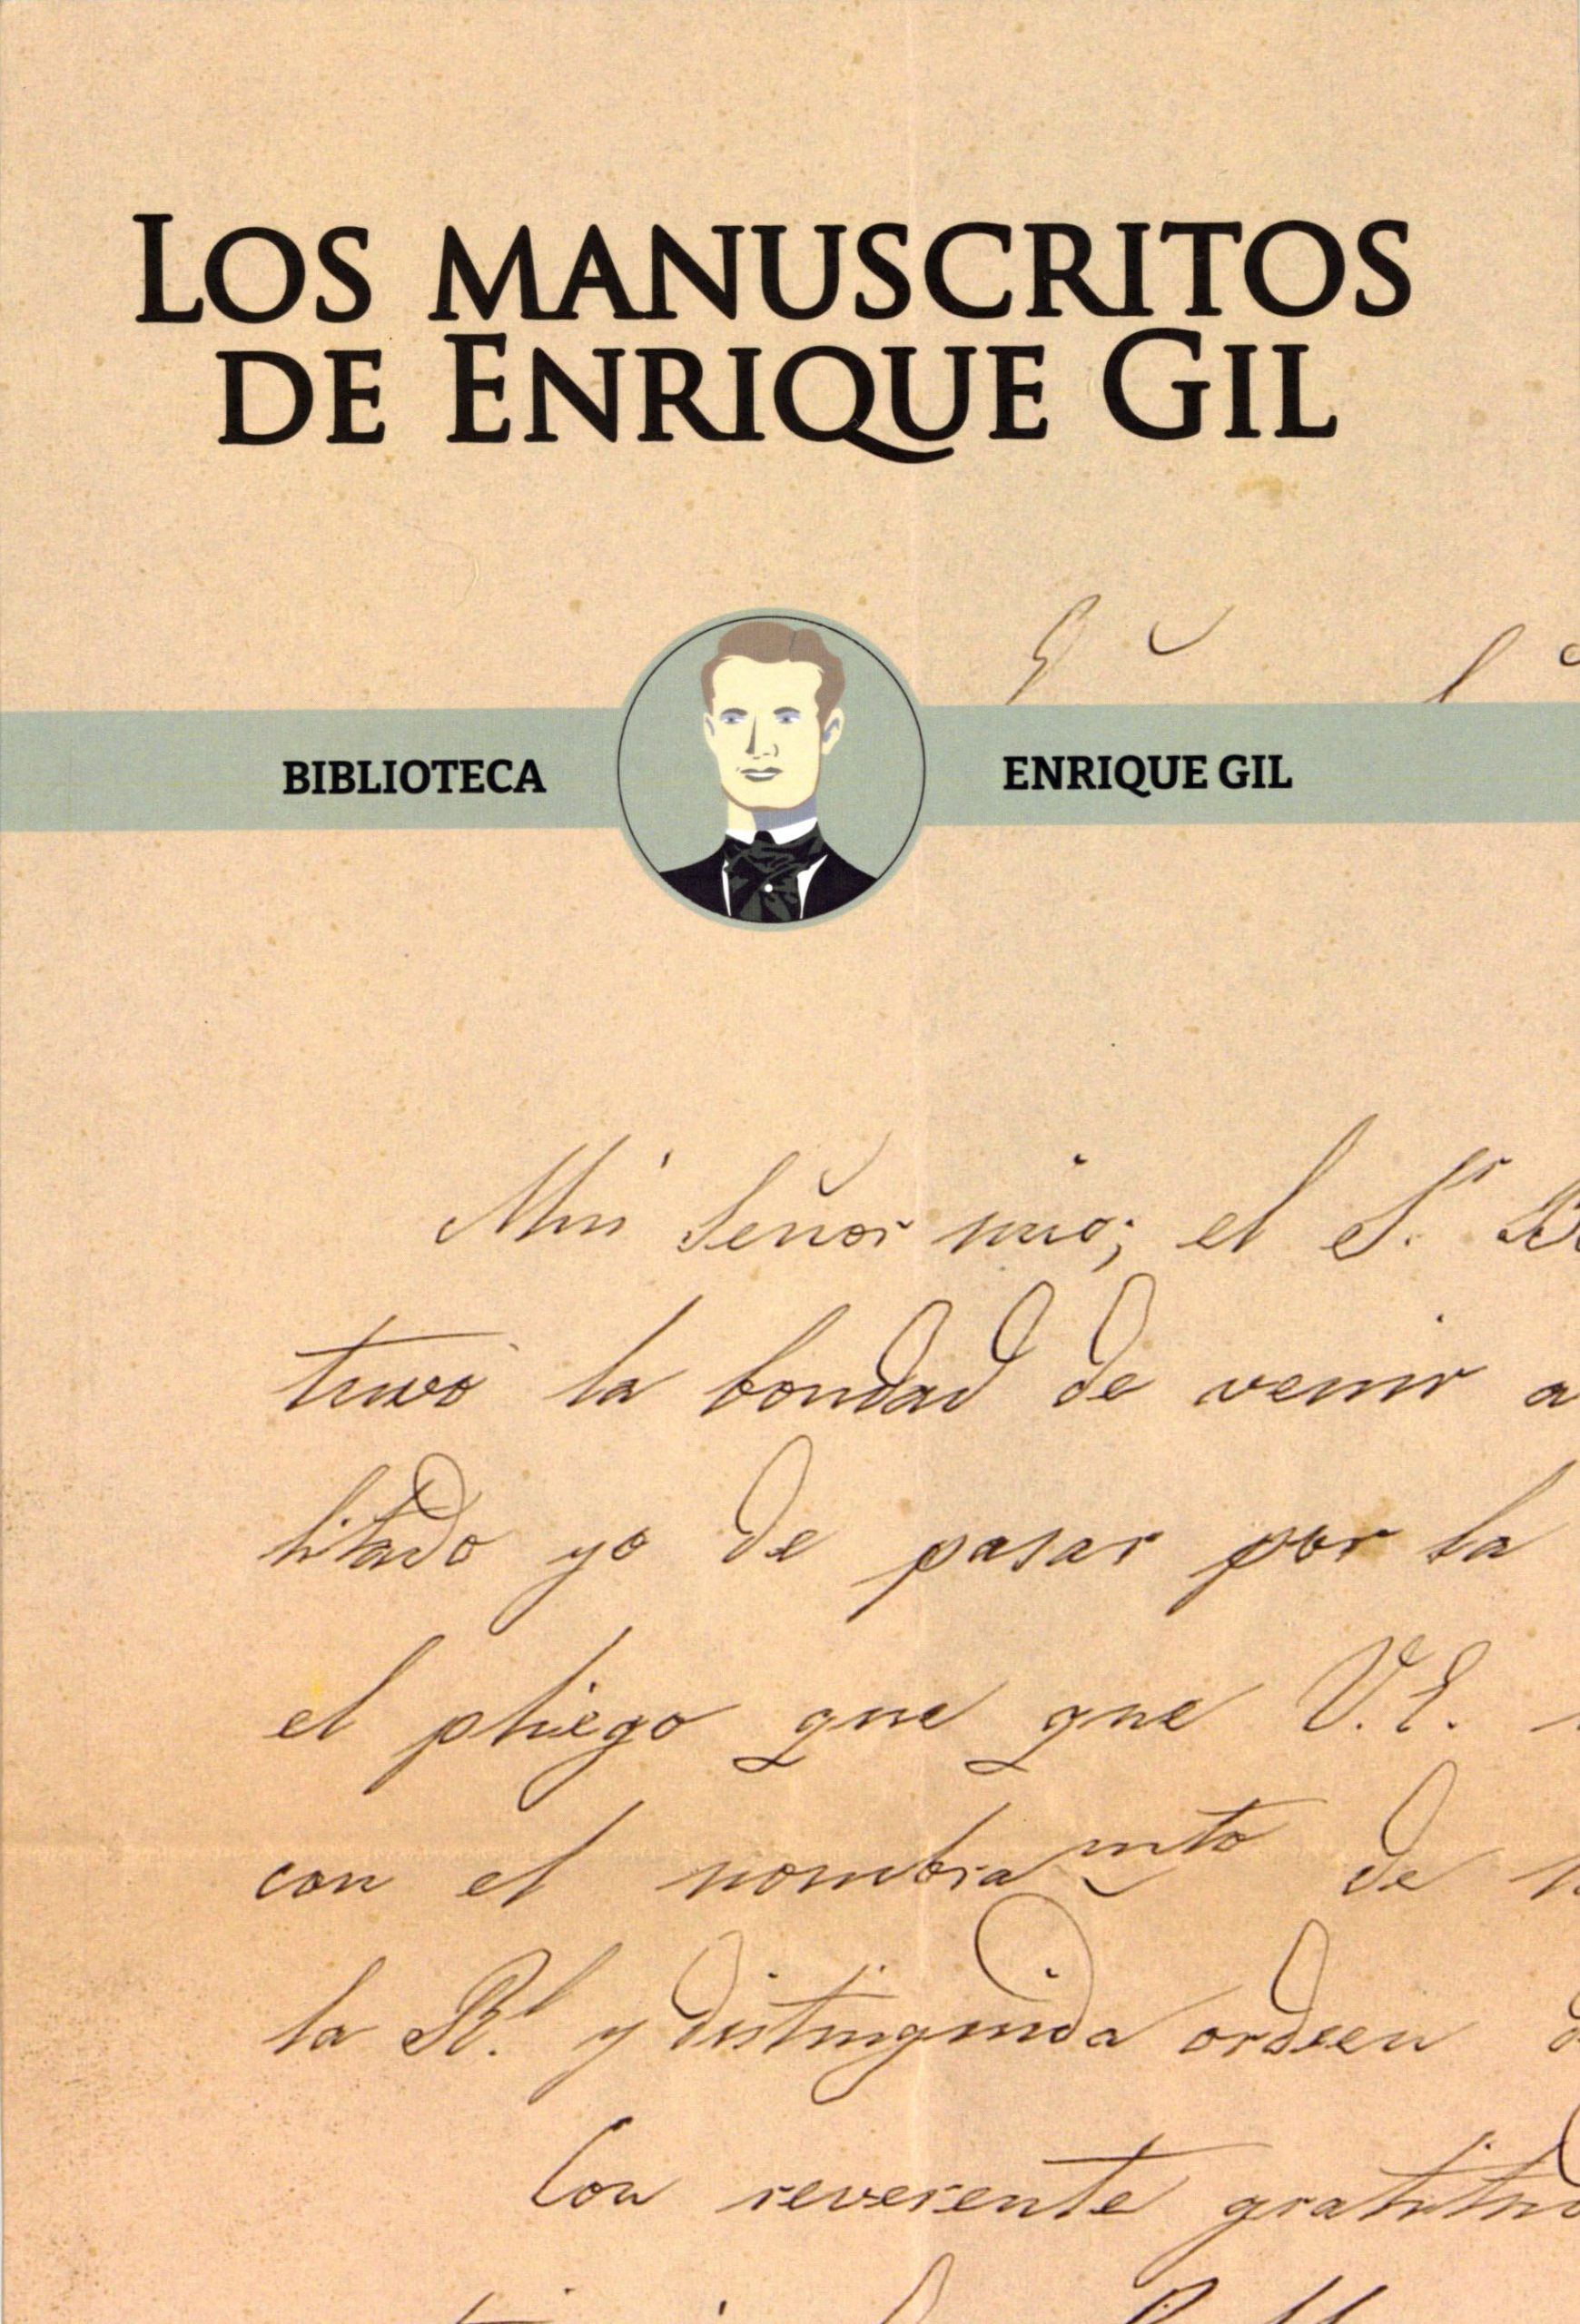 LOS MANUSCRITOS
DE ENRIQUE GIL
BIBLIOTECA
ENRIQUE GIL
Muy Señor mio; el S.r
tuvo la bondad de venir a
litado yo de pasar por la
el pliego que que V.E.
con el nombramto de
la Rl. y distinguida orden
Con reverente